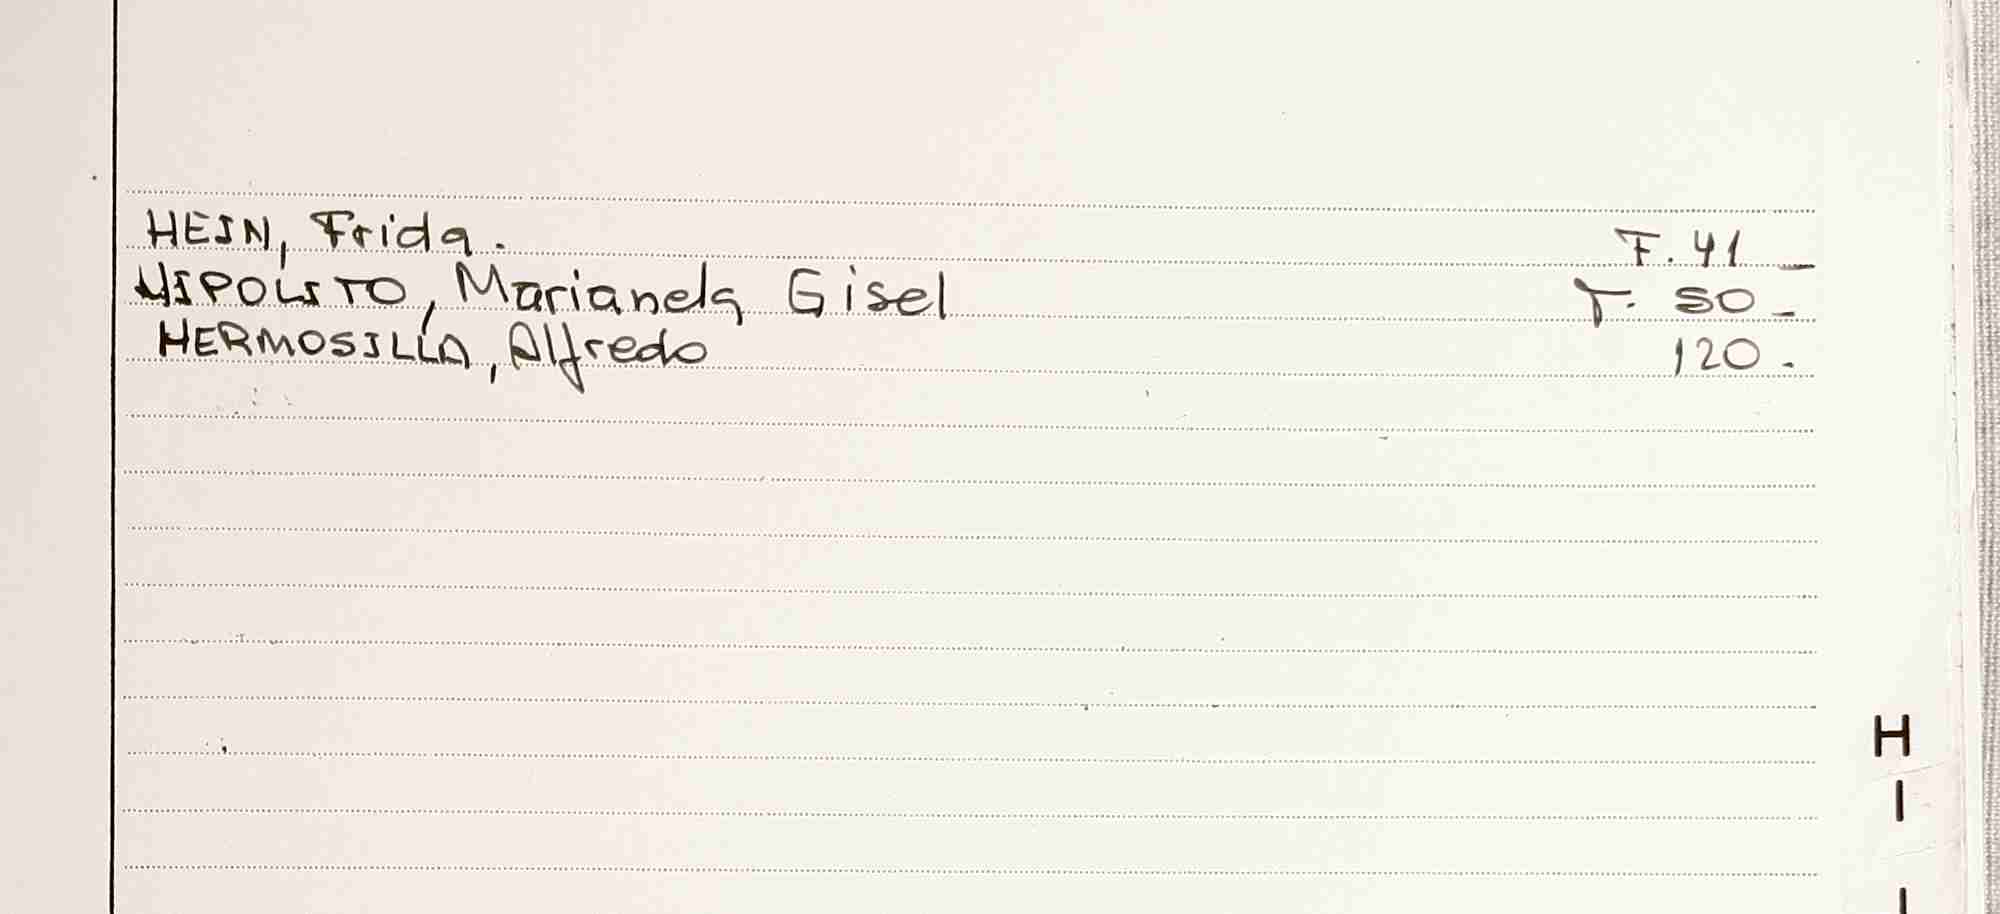 HEIN, Frida.
F. 41 _
HIPOLITO, Marianela Gisel
F. 50 _
HERMOSILLA, Alfredo
120.
H
I